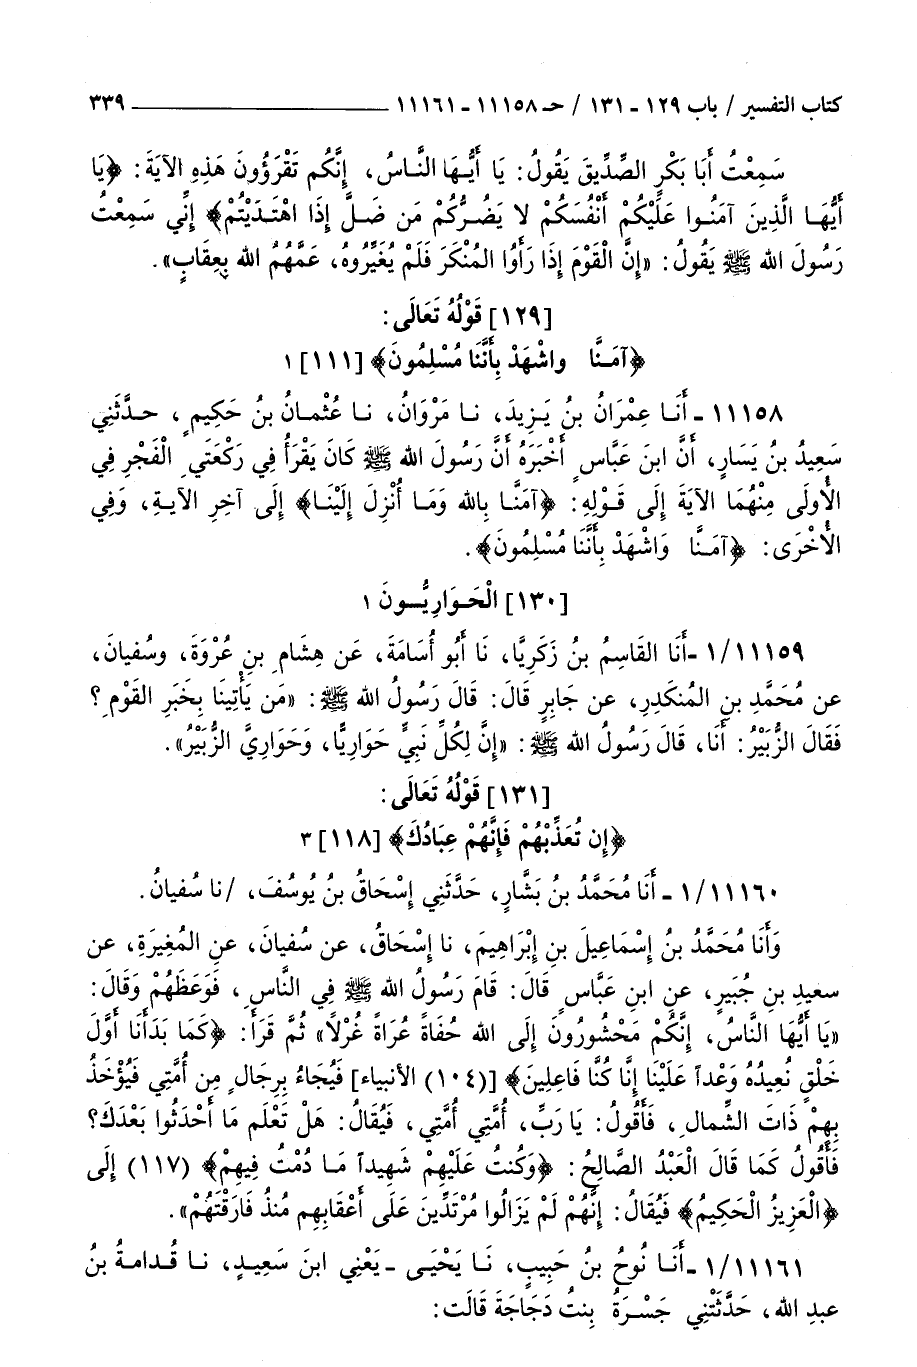 كتاب التفسير / باب ١٢٩ - ١٣١ / حـ ١١١٥٨ - ١١١٦١ ٣٣٩
سَمِعْتُ أَبَا بَكْرٍ الصِّدِّيقَ يَقُولُ: يَا أَيُّهَا النَّاسُ، إِنَّكُم تَقْرَؤُونَ هَذِهِ الآيَةَ: ﴿يَا
أَيُّهَا الَّذِينَ آمَنُوا عَلَيْكُمْ أَنْفُسَكُمْ لا يَضُرُّكُمْ مَن ضَلَّ إِذَا اهْتَدَيْتُمْ﴾ إِنِّي سَمِعْتُ
رَسُولَ الله ﷺ يَقُولُ: «إِنَّ الْقَوْمَ إِذَا رَأَوُا المُنْكَرَ فَلَمْ يُغَيِّرُوهُ، عَمَّهُمُ الله بِعِقَابٍ».
[١٢٩] قَوْلُهُ تَعَالَى:
﴿آمَنَّا واشْهَدْ بِأَنَّنَا مُسْلِمُونَ﴾ [١١١] ١
١١١٥٨ - أَنَا عِمْرَانُ بنُ يَزِيدَ، نا مَرْوَانُ، نا عُثْمانُ بنُ حَكِيمٍ، حدَّثَنِي
سَعِيدُ بنُ يَسَارٍ، أَنَّ ابنَ عَبَّاسٍ أَخْبَرَهُ أَنَّ رَسُولَ الله ﷺ كَانَ يَقْرَأُ فِي رَكْعَتَيِ الْفَجْرِ فِي
الأُولَى مِنْهُمَا الآيَةَ إِلَى قَوْلِهِ: ﴿آمَنَّا بِالله وَمَا أُنْزِلَ إِلَيْنَا﴾ إِلَى آخِرِ الآيةِ، وَفِي
الأُخْرَى: ﴿آمَنَّا وَاشْهَدْ بِأَنَّنَا مُسْلِمُونَ﴾.
[١٣٠] الْحَوَارِيُّونَ ١
١/١١١٥٩ - أَنَا القَاسِمُ بنُ زَكَرِيَّا، نَا أَبُو أُسَامَةَ، عَن هِشَامِ بنِ عُرْوَةَ، وسُفيانَ،
عن مُحَمَّدِ بنِ المُنكَدِرِ، عن جَابِرٍ قَالَ: قَالَ رَسُولُ الله ﷺ: «مَن يَأْتِينَا بِخَبَرِ القَوْمِ؟
فَقَالَ الزُّبَيْرُ: أَنَا، قَالَ رَسُولُ الله ﷺ: «إِنَّ لِكُلِّ نَبِيٍّ حَوَارِيًّا، وَحَوَارِيَّ الزُّبَيْرُ».
[١٣١] قَوْلُهُ تَعَالَى:
﴿إِن تُعَذِّبْهُمْ فَإِنَّهُمْ عِبَادُكَ﴾ [١١٨] ٣
١/١١١٦٠ - أَنَا مُحَمَّدُ بنُ بَشَّارٍ، حَدَّثَنِي إِسْحَاقُ بنُ يُوسُفَ، /نا سُفيانُ.
وَأَنَا مُحَمَّدُ بنُ إِسْمَاعِيلَ بنِ إِبْرَاهِيمَ، نا إِسْحَاقُ، عن سُفيانَ، عنِ المُغِيرَةِ، عن
سعيدِ بنِ جُبَيرٍ، عنِ ابنِ عَبَّاسٍ قَالَ: قَامَ رَسُولُ الله ﷺ فِي النَّاسِ، فَوَعَظَهُمْ وَقَالَ:
«يَا أَيُّهَا النَّاسُ، إِنَّكُمْ مَحْشُورُونَ إِلَى الله حُفَاةً عُرَاةً غُرْلاً» ثُمَّ قَرَأَ: ﴿كَمَا بَدَأْنَا أَوَّلَ
خَلْقٍ نُعِيدُهُ وَعْداً عَلَيْنَا إِنَّا كُنَّا فَاعِلِينَ﴾ [(١٠٤) الأنبياء] فَيُجَاءُ بِرِجَالٍ مِن أُمَّتِي فَيُؤْخَذُ
بِهِمْ ذَاتَ الشِّمالِ، فَأَقُولُ: يَا رَبِّ، أُمَّتِي أُمَّتِي، فَيُقَالُ: هَلْ تَعْلَم مَا أَحْدَثُوا بَعْدَكَ؟
فَأَقُولُ كَمَا قَالَ الْعَبْدُ الصَّالِحُ: ﴿وَكُنتُ عَلَيْهِمْ شَهِيداً مَا دُمْتُ فِيهِمْ﴾ (١١٧) إِلَى
﴿الْعَزِيزُ الْحَكِيمُ﴾ فَيُقَالُ: إِنَّهُمْ لَمْ يَزَالُوا مُرْتَدِّينَ عَلَى أَعْقَابِهِم مُنذُ فَارَقْتَهُمْ».
١/١١١٦١ - أَنَا نُوحُ بنُ حَبِيبٍ، نَا يَحْيَى - يَعْنِي ابنَ سَعِيدٍ، نا قُدامةُ بنُ
عبدِ الله، حَدَّثَتْنِي جَسْرَةُ بِنتُ دَجَاجَةَ قَالَت: